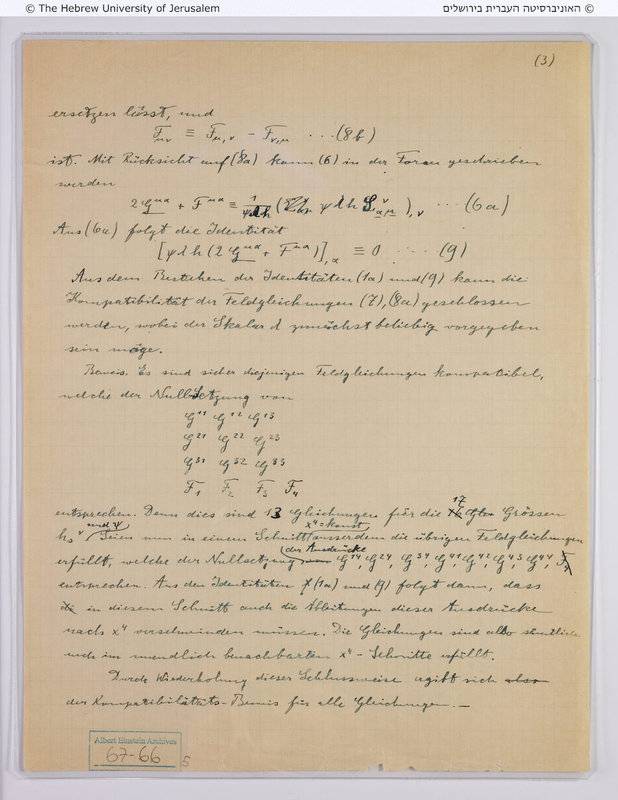 © The Hebrew University of Jerusalem
האוניברסיטה העברית בירושלים ©
(3)
ersetzen lässt, und
F_μν ≡ F_μ,ν − F_ν,μ ···(8b)
ist. Mit Rücksicht auf (8a) kann (6) in der Form geschrieben
werden
2 G^μα + F^μα ≡ 1/ψλh ( ψλh S^ν_αμ ),ν ··· (6a)
Aus (6a) folgt die Identität
[ψλh(2 G^μα + F^μα)],α ≡ 0 ···· (9)
Aus dem Bestehen der Identitäten (1a) und (9) kann die
Kompatibilität der Feldgleichungen (7), (8a) geschlossen
werden, wobei der Skalar λ zunächst beliebig vorgegeben
sein möge.
Beweis. Es sind sicher diejenigen Feldgleichungen kompatibel,
welche der Nullsetzung von
G^11 G^12 G^13
G^21 G^22 G^23
G^31 G^32 G^33
F_1 F_2 F_3 F_4
entsprechen. Denn dies sind 13 Gleichungen für die 17 Grössen
h_s^ν und ψ. Seien nun in einem Schnitt x^4 = konst. ausserdem die übrigen Feldgleichungen
erfüllt, welche der Nullsetzung der Ausdrücke G^14, G^24, G^34, G^41, G^42, G^43, G^44,
entsprechen. Aus den Identitäten (1a) und (9) folgt dann, dass
in diesem Schnitt auch die Ableitungen dieser Ausdrücke
nach x^4 verschwinden müssen. Die Gleichungen sind also sämtlich
auch im unendlich benachbarten x^4 - Schnitte erfüllt.
Durch Wiederholung dieser Schlussweise ergibt sich
der Kompatibilitäts-Beweis für alle Gleichungen. —
Albert Einstein Archives
67-66
5